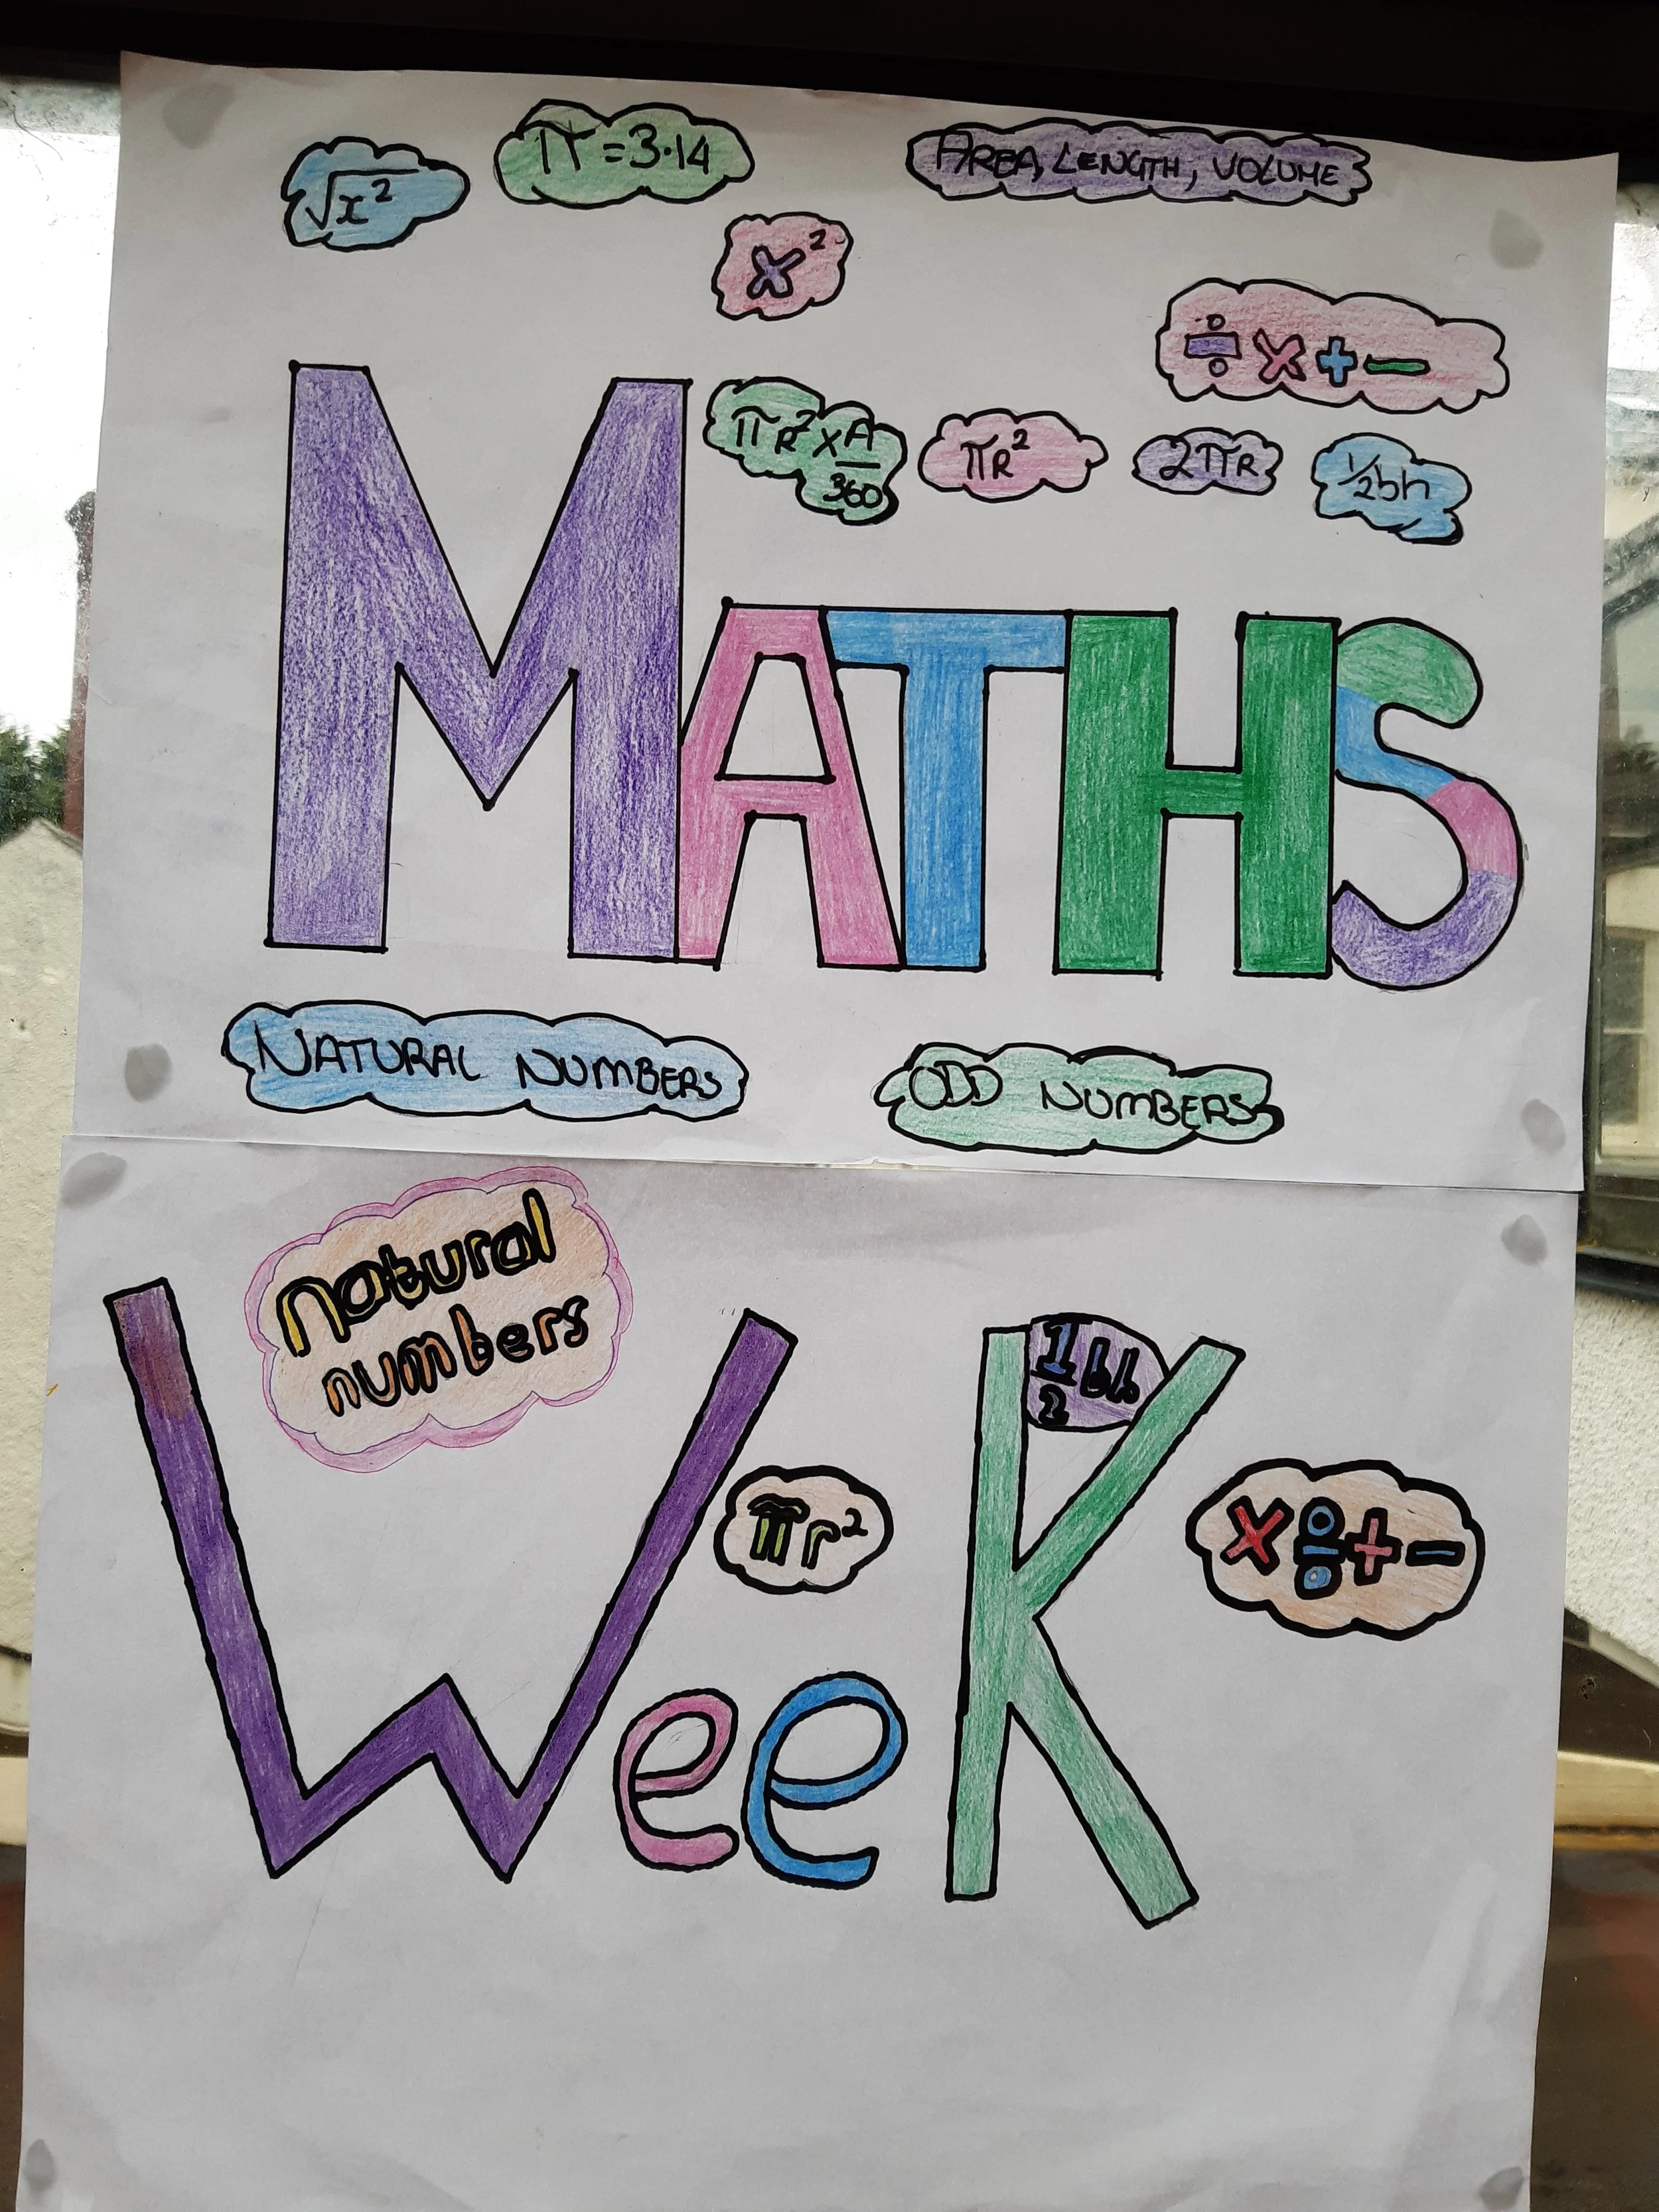 √x²
π = 3·14
AREA, LENGTH, VOLUME
x²
÷ × + −
πR² × A/360
πR²
2πR
1/2bh
MATHS
NATURAL NUMBERS
ODD NUMBERS
natural
numbers
1/2 bh
πr²
× ÷ + −
WeeK